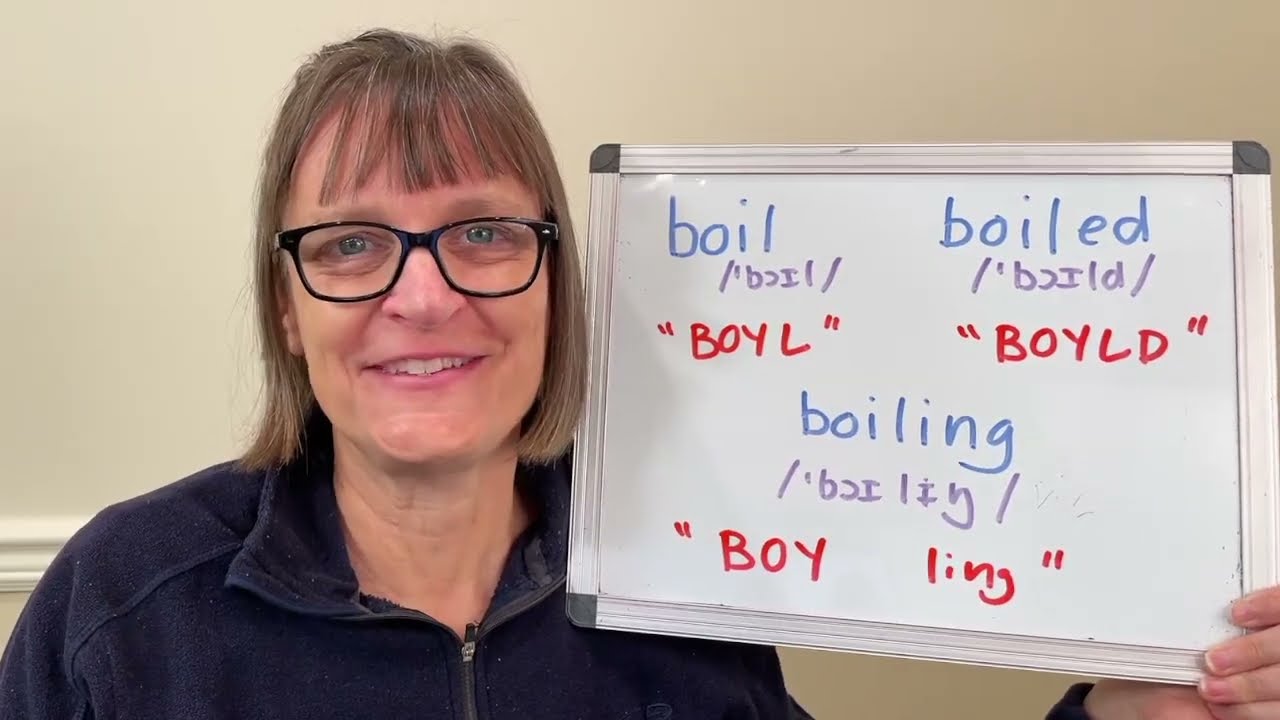 boil boiled
/ˈbɔɪl/ /ˈbɔɪld/
"BOYL" "BOYLD"
boiling
/ˈbɔɪlɪŋ/
"BOY ling"